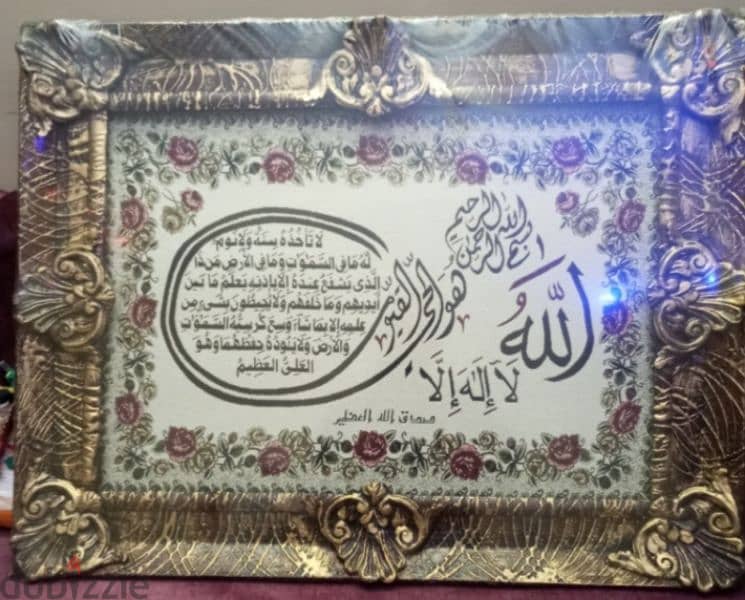 بسم الله الرحمن الرحيم
الله
لا إله إلا
هو الحي القيوم
لا تأخذه سنة ولا نوم
له ما في السموات وما في الأرض من ذا
الذي يشفع عنده إلا بإذنه يعلم ما بين
أيديهم وما خلفهم ولا يحيطون بشيء من
علمه إلا بما شاء وسع كرسيه السموات
والأرض ولا يئوده حفظهما وهو
العلي العظيم
صدق الله العظيم
dubizzle